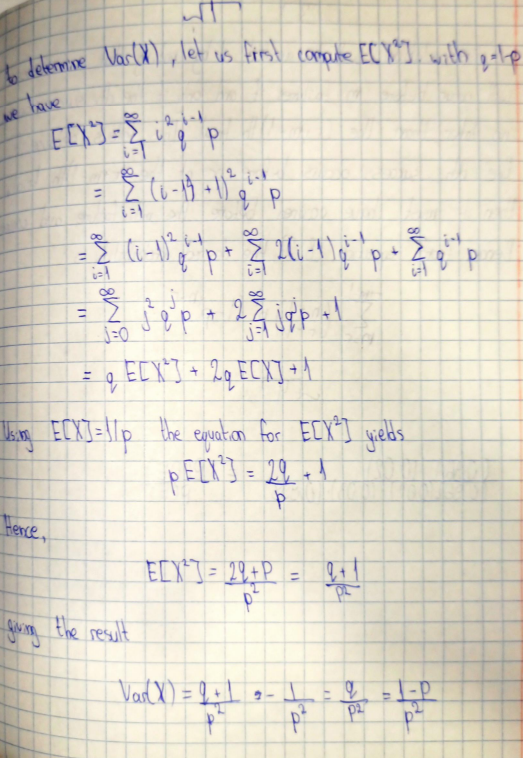 √1
to determine Var(X), let us first compute E[X²] with q=1-p
we have
E[X²] = ∑_{i=1}^{∞} i² q^{i-1} p
= ∑_{i=1}^{∞} (i-1+1)² q^{i-1} p
= ∑_{i=1}^{∞} (i-1)² q^{i-1} p + ∑_{i=1}^{∞} 2(i-1) q^{i-1} p + ∑_{i=1}^{∞} q^{i-1} p
= ∑_{j=0}^{∞} j² q^j p + 2 ∑_{j=1}^{∞} j q^j p + 1
= q E[X²] + 2q E[X] + 1
Using E[X]=1/p the equation for E[X²] yields
p E[X²] = 2q/p + 1
Hence,
E[X²] = (2q+p)/p² = (q+1)/p²
giving the result
Var(X) = (q+1)/p² - 1/p² = q/p² = (1-p)/p²